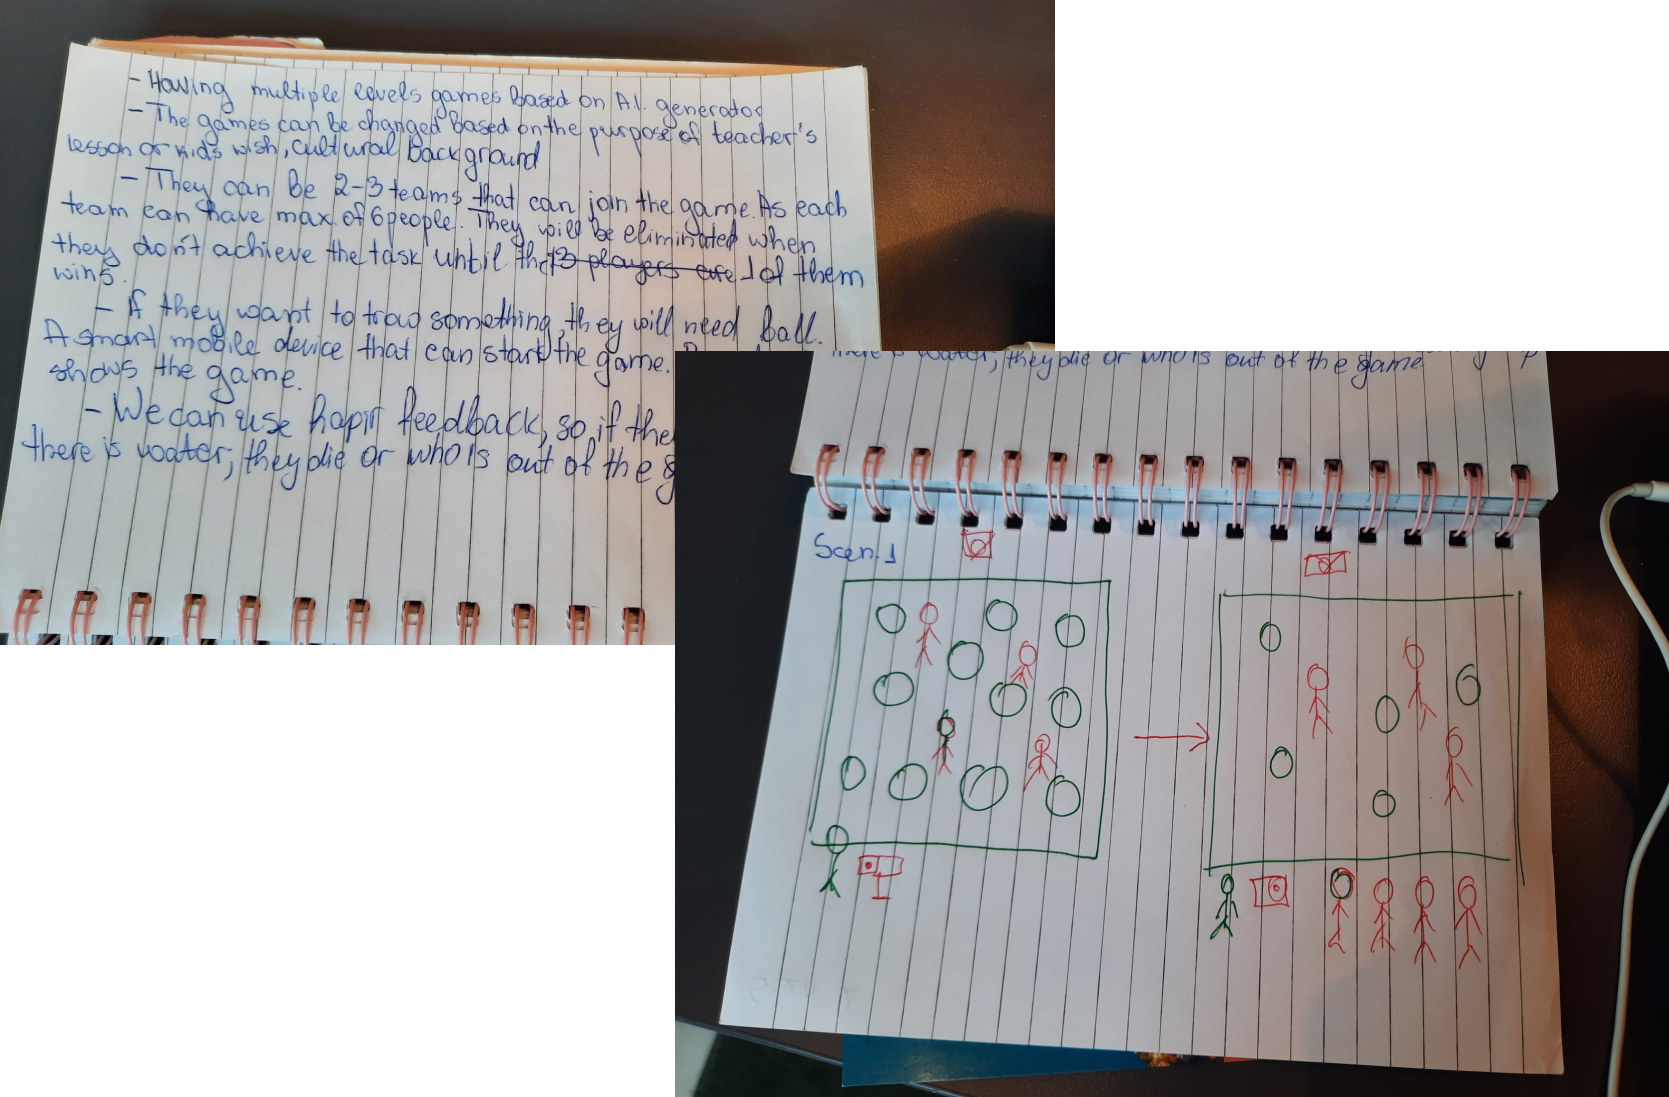 - Having multiple levels games based on A.I. generator
- The games can be changed based on the purpose of teacher's
lesson or kids wish, cultural background
- They can be 2-3 teams that can join the game. As each
team can have max of 6 people. They will be eliminated when
they don't achieve the task until the 13 players are 1 of them
wins.
- If they want to trow something, they will need ball.
A smart mobile device that can start the game.
shows the game.
- We can use hapit feedback, so, if the
there is water, they die or who is out of the g
there is water, they die or who is out of the game
Scen. 1